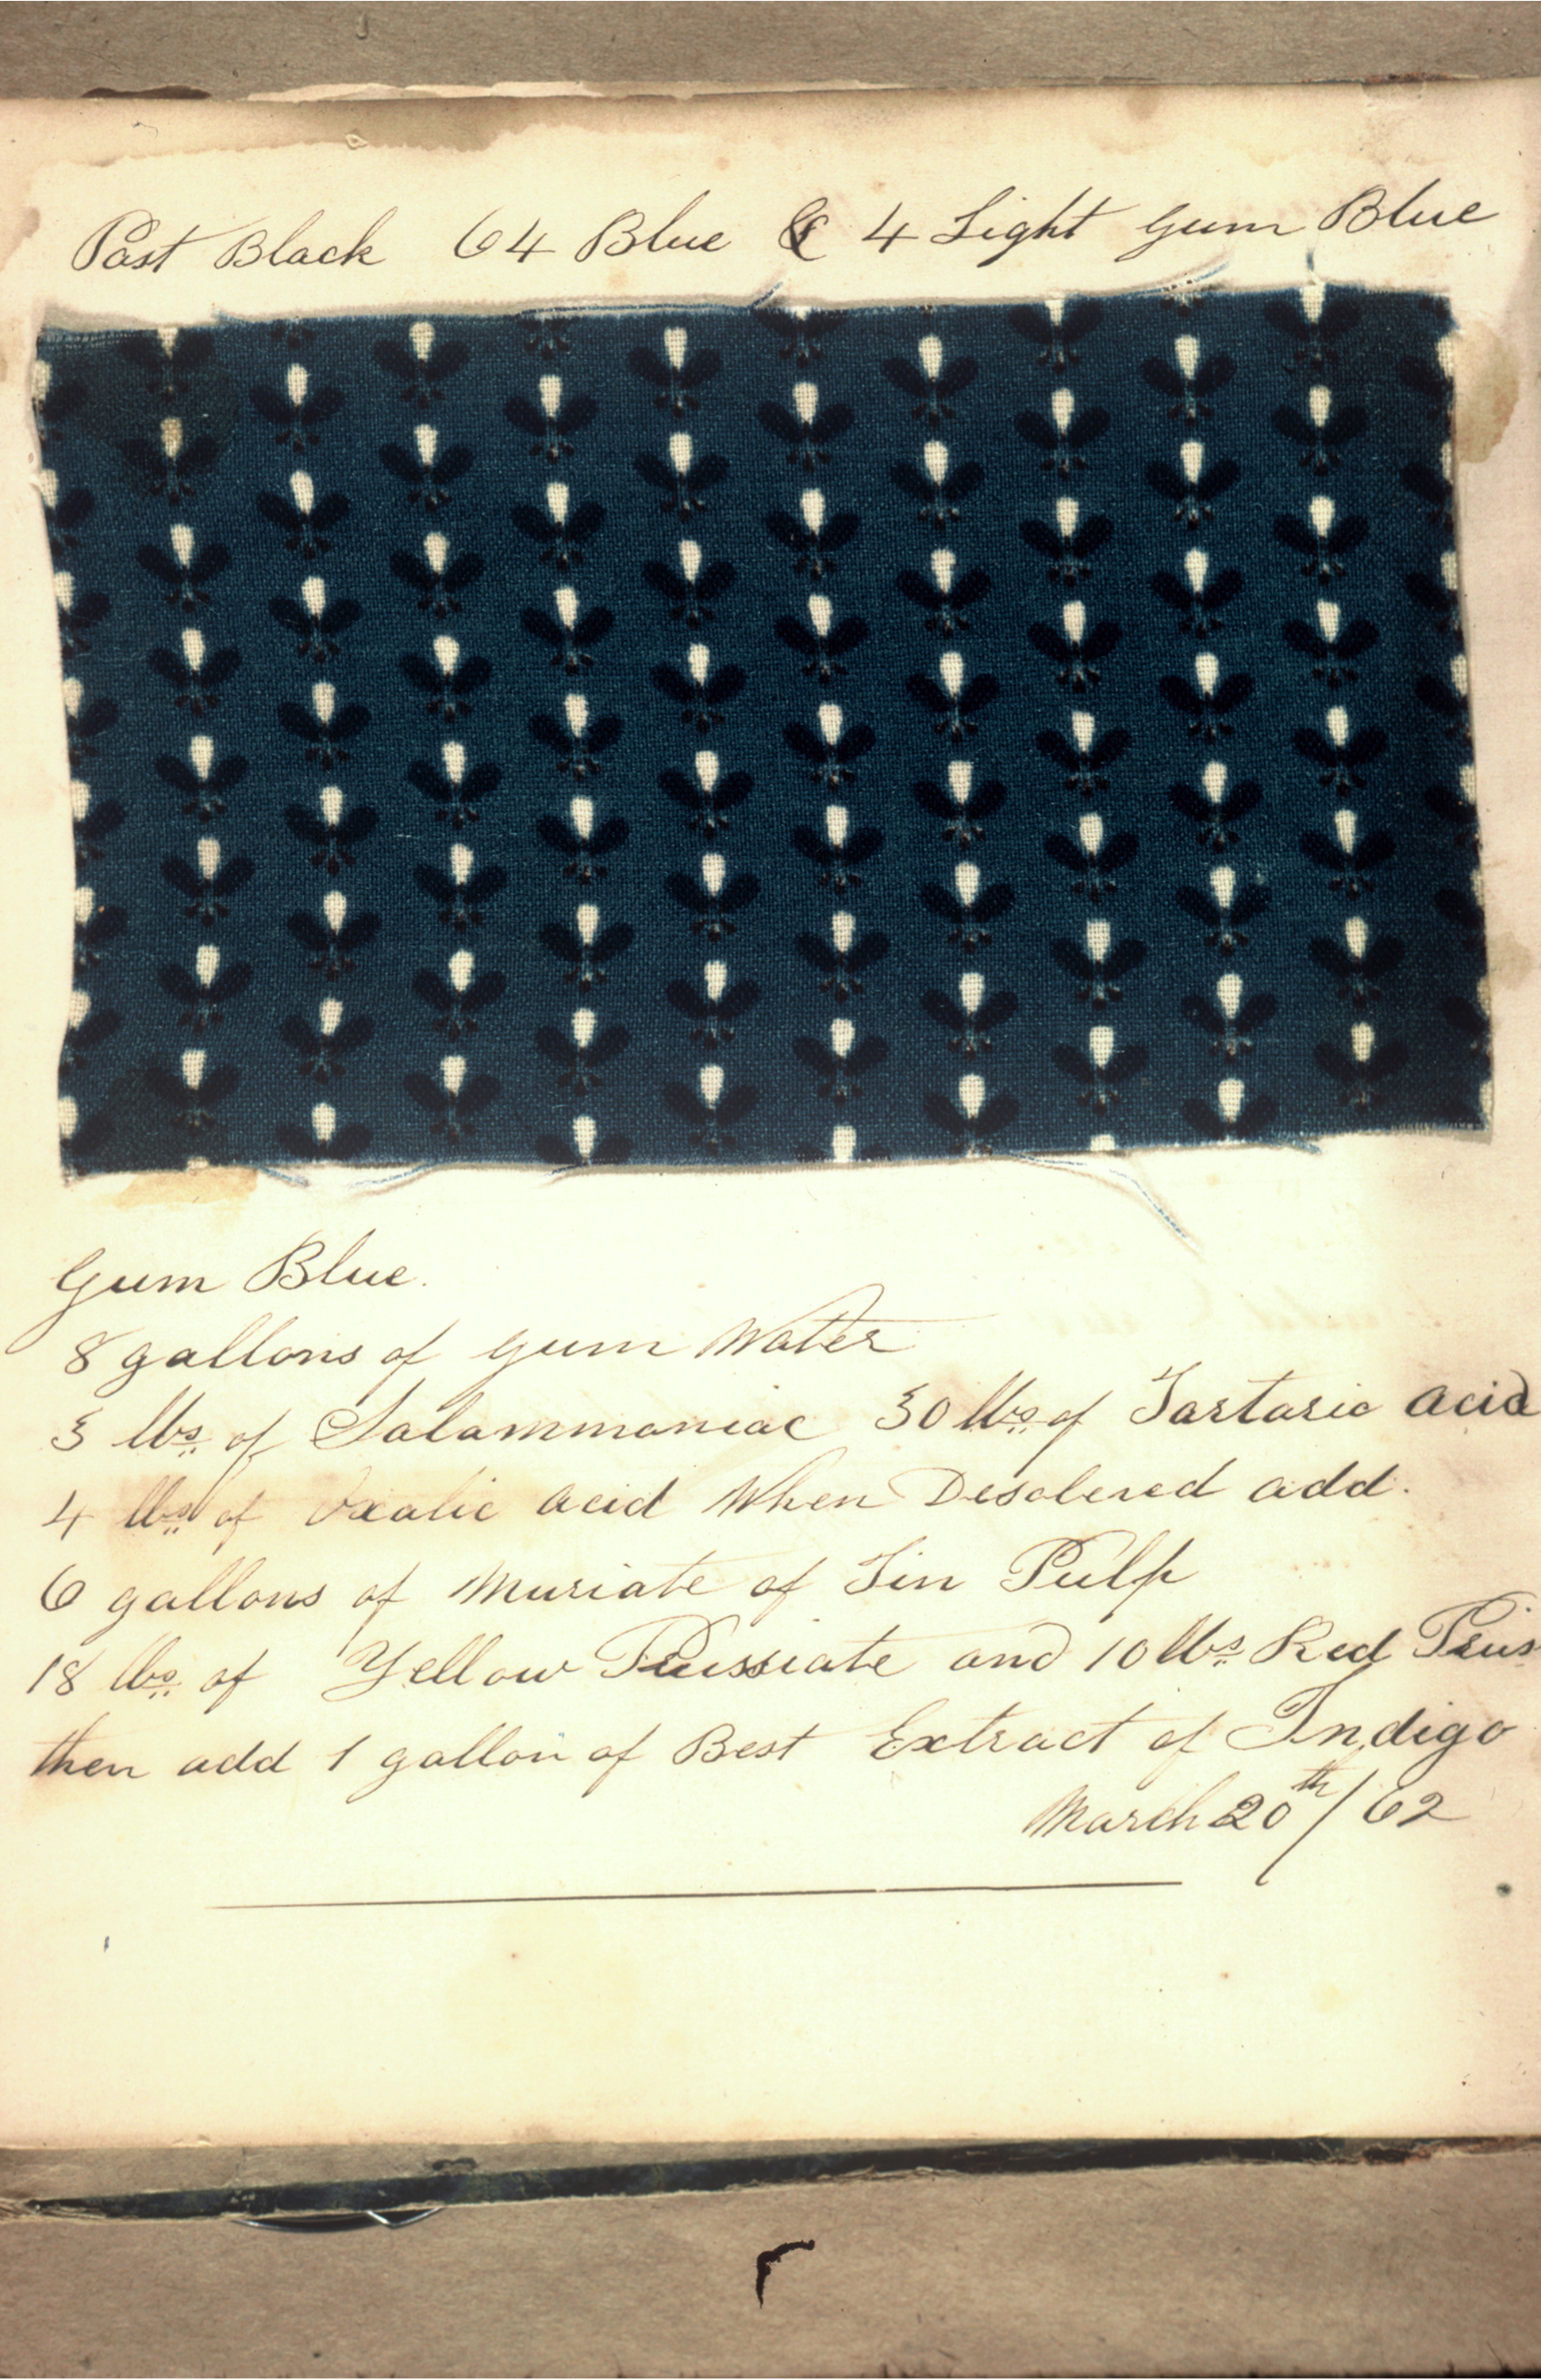 Past Black 64 Blue & 4 Light Gum Blue
Gum Blue.
8 gallons of gum Water
3 lbs of Salammoniac 30 lbs of Tartaric acid
4 lbs of Oxalic acid When Desolved add.
6 gallons of Muriate of Tin Pulp
18 lbs of Yellow Prussiate and 10 lbs Red Prus
then add 1 gallon of Best Extract of Indigo
March 20th / 62